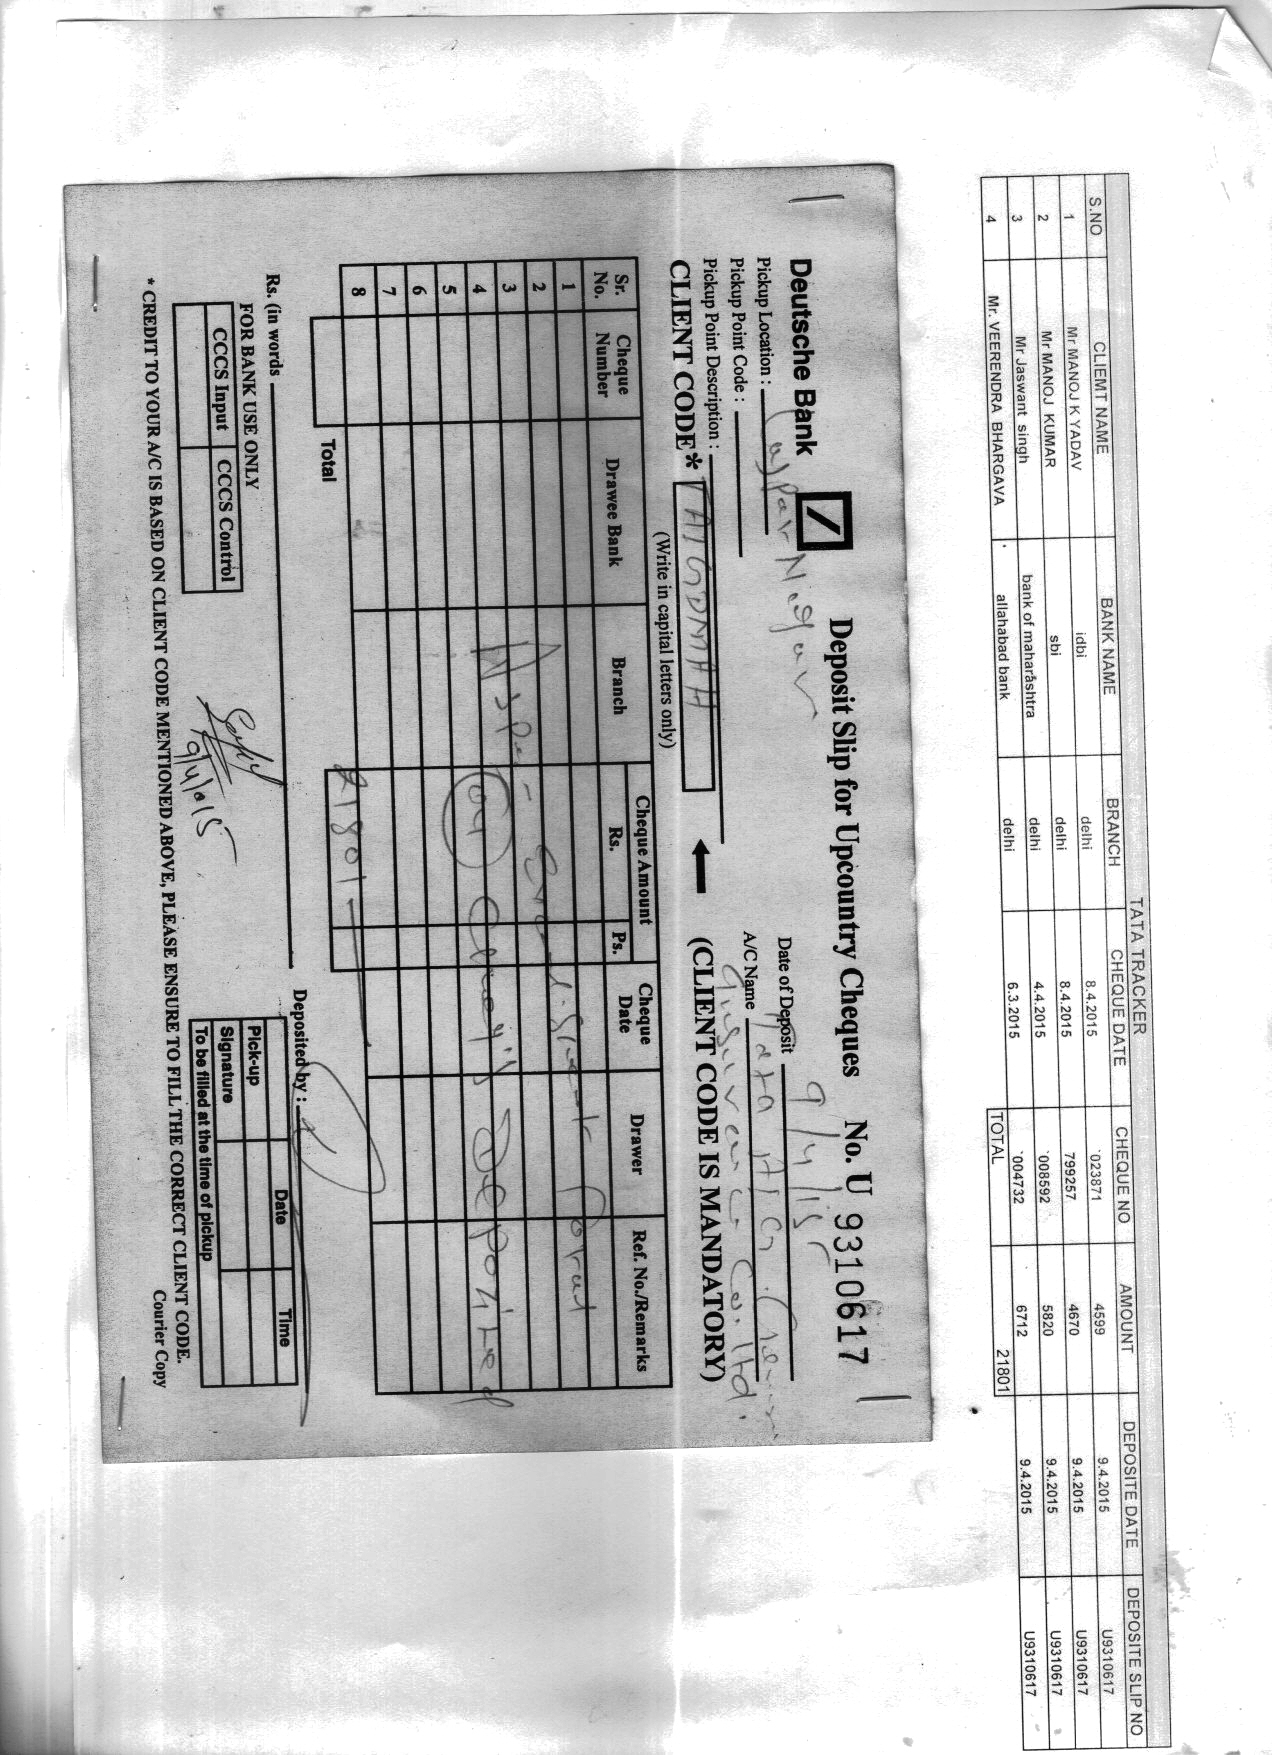 TATA TRACKER
S.NO CLIEMT NAME BANK NAME BRANCH CHEQUE DATE CHEQUE NO AMOUNT DEPOSITE DATE DEPOSITE SLIP NO
1 Mr MANOJ K YADAV idbi delhi 8.4.2015 `023871 4599 9.4.2015 U9310617
2 Mr MANOJ KUMAR sbi delhi 8.4.2015 799257 4670 9.4.2015 U9310617
3 Mr Jaswant singh bank of maharashtra delhi 4.4.2015 `008592 5820 9.4.2015 U9310617
4 Mr. VEERENDRA BHARGAVA allahabad bank delhi 6.3.2015 `004732 6712 9.4.2015 U9310617
TOTAL 21801
Deutsche Bank Deposit Slip for Upcountry Cheques No. U 9310617
Pickup Location : Lajpat Nagar Date of Deposit 9/4/15
Pickup Point Code : A/C Name Tata AIG General
Insurance Co. ltd.
Pickup Point Description :
CLIENT CODE* TAIGDMAH (CLIENT CODE IS MANDATORY)
(Write in capital letters only)
Sr. No. Cheque Number Drawee Bank Branch Cheque Amount Rs. Ps. Cheque Date Drawer Ref. No./Remarks
1
2
3 As Per
4 04 Deposited
5
6
7
8
Total 21801
Rs. (in words)
Deposited by :
FOR BANK USE ONLY
CCCS Input CCCS Control
9/4/015
Pick-up Date Time
Signature
To be filled at the time of pickup
* CREDIT TO YOUR A/C IS BASED ON CLIENT CODE MENTIONED ABOVE, PLEASE ENSURE TO FILL THE CORRECT CLIENT CODE.
Courier Copy